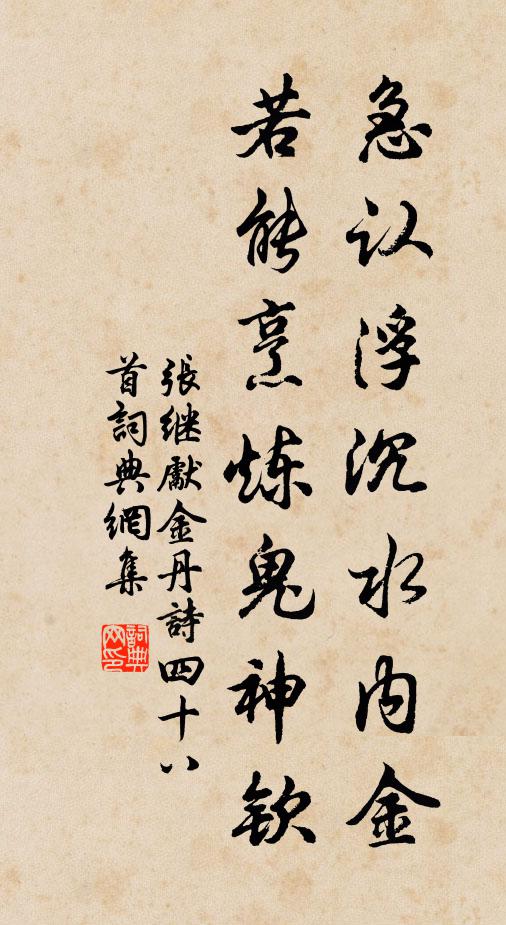 急认浮沉水内金
若能烹炼鬼神钦
張继獻金丹詩四十八
首詞典網集
詞典
网印